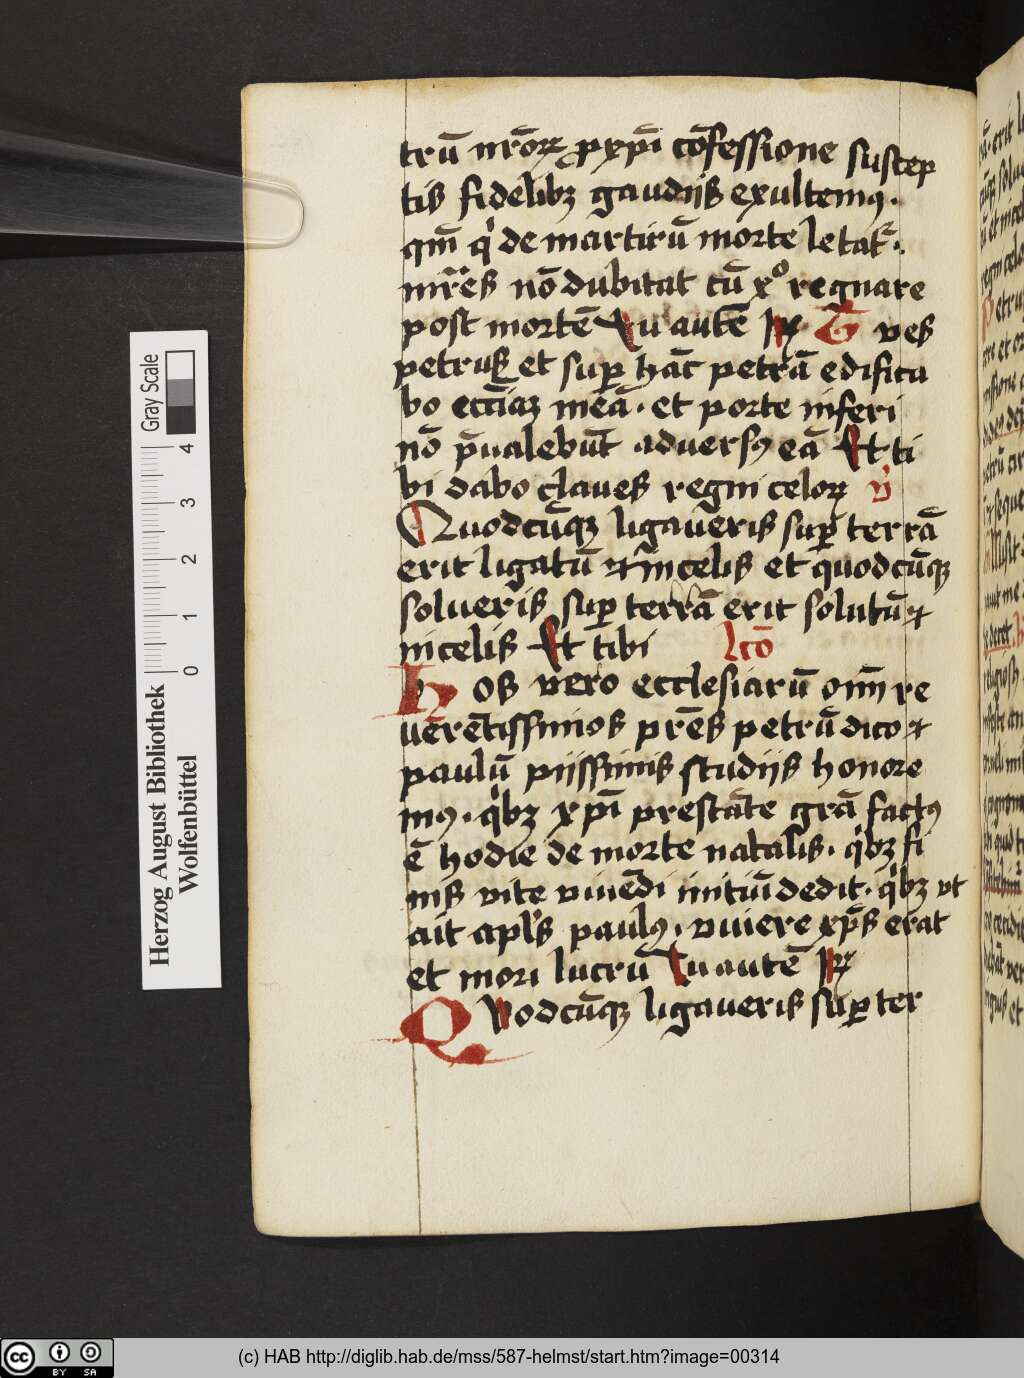 trū nr̄oꝝ p xp̄i cōfessione suscep
tis fidelibꝫ gaudijs exultemꝯ.
qm̄ qͥ de martirū morte letatᷣ.
mr̄es nō dubitat cū xº regnare
post mortē Tu autē
ves
petrus et suꝑ hāc petrā edifica
bo eccīaꝫ meā. et porte inferi
nō p̄ualebūt aduersꝯ eā Et ti
bi dabo claues regni celoꝝ v̄
Quodcūqꝫ ligaueris suꝑ terrā
erit ligatū ⁊ in celis et quodcūqꝫ
solueris suꝑ terrā erit solutū ⁊
in celis Et tibi lcō
Hos vero ecclesiarū om̄ re
uerētissimos pr̄es petrū dico ⁊
paulū pijssimis studijs honore
mꝯ. qͥbꝫ xp̄i prestāte grā factꝯ
ē hodie de morte natalis. qͥbꝫ fi
nis vite viuēdi initiū dedit. qͥbꝫ vt
ait apl̄s paulꝯ. viuere xp̄s erat
et mori lucrū Tu autē
Quodcūqꝫ ligaueris suꝑ ter
Gray Scale
4
3
2
1
0
Herzog August Bibliothek
Wolfenbüttel
cc
BY SA
(c) HAB http://diglib.hab.de/mss/587-helmst/start.htm?image=00314